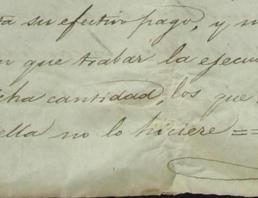 ta su efectivo pago, y
que trabar la ejecu
cha cantidad, los que
ella no lo hiciere =